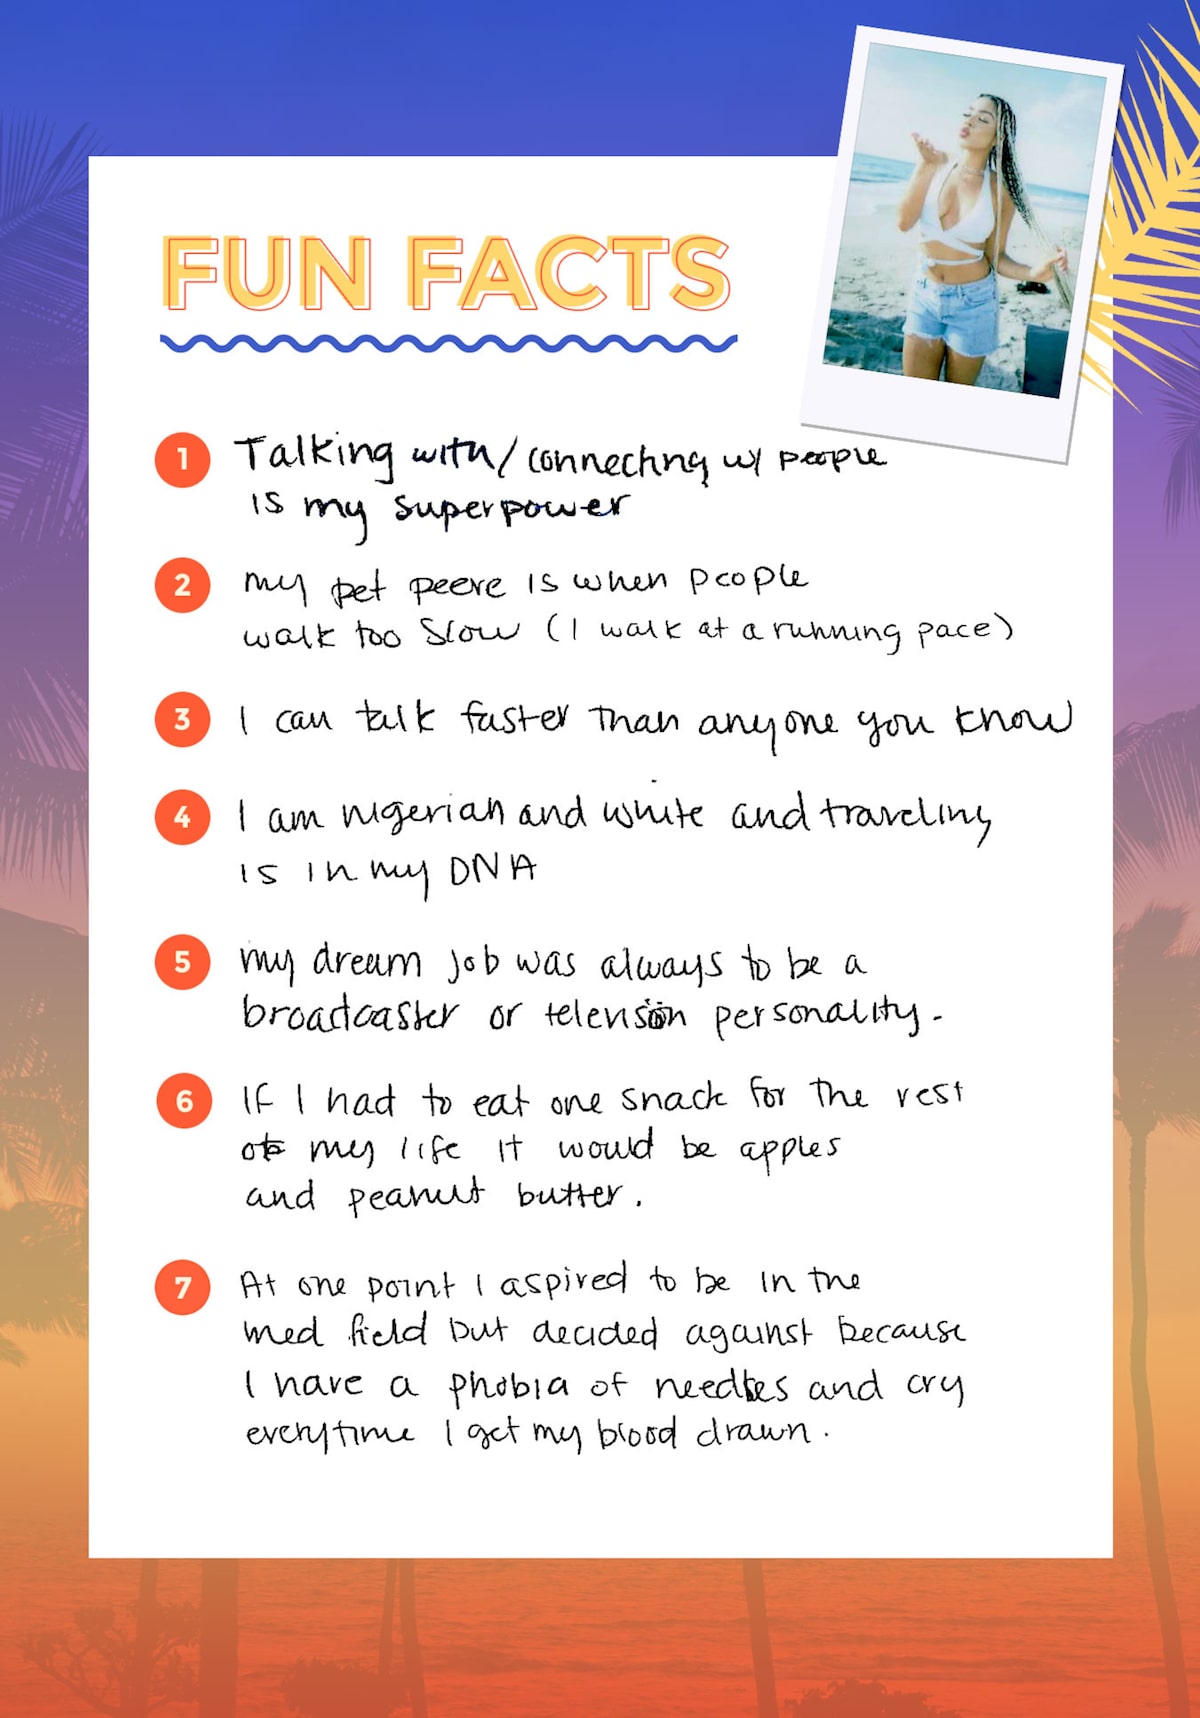 FUN FACTS
1 Talking with/connecting w/ people
is my superpower
2 my pet peeve is when people
walk too slow (I walk at a running pace)
3 I can talk faster than anyone you know
4 I am nigerian and white and traveling
is in my DNA
5 my dream job was always to be a
broadcaster or television personality.
6 If I had to eat one snack for the rest
of my life it would be apples
and peanut butter.
7 At one point I aspired to be in the
med field but decided against because
I have a phobia of needles and cry
everytime I get my blood drawn.